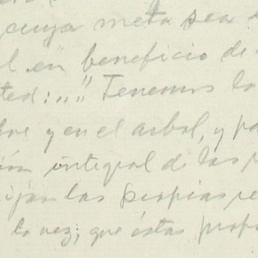 cuya meta sea
l en beneficio de
ted:..." Tenemos la
re y en el arbol, y pa
ón integral de las p
ijan las propias pe
la vez; que éstas prop